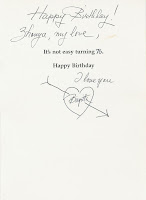 Happy Birthday!
my love,
It's not easy turning 76.
Happy Birthday
I love you